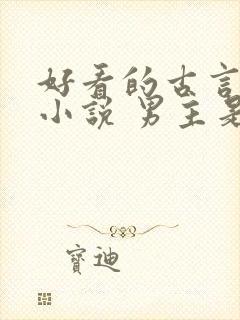 好看的古言
小說 男主是
寶迪